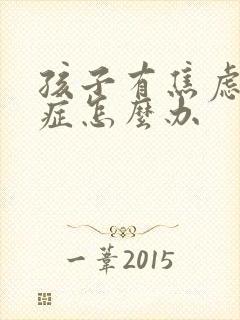 孩子有焦虑
症怎麽办
一葦2015